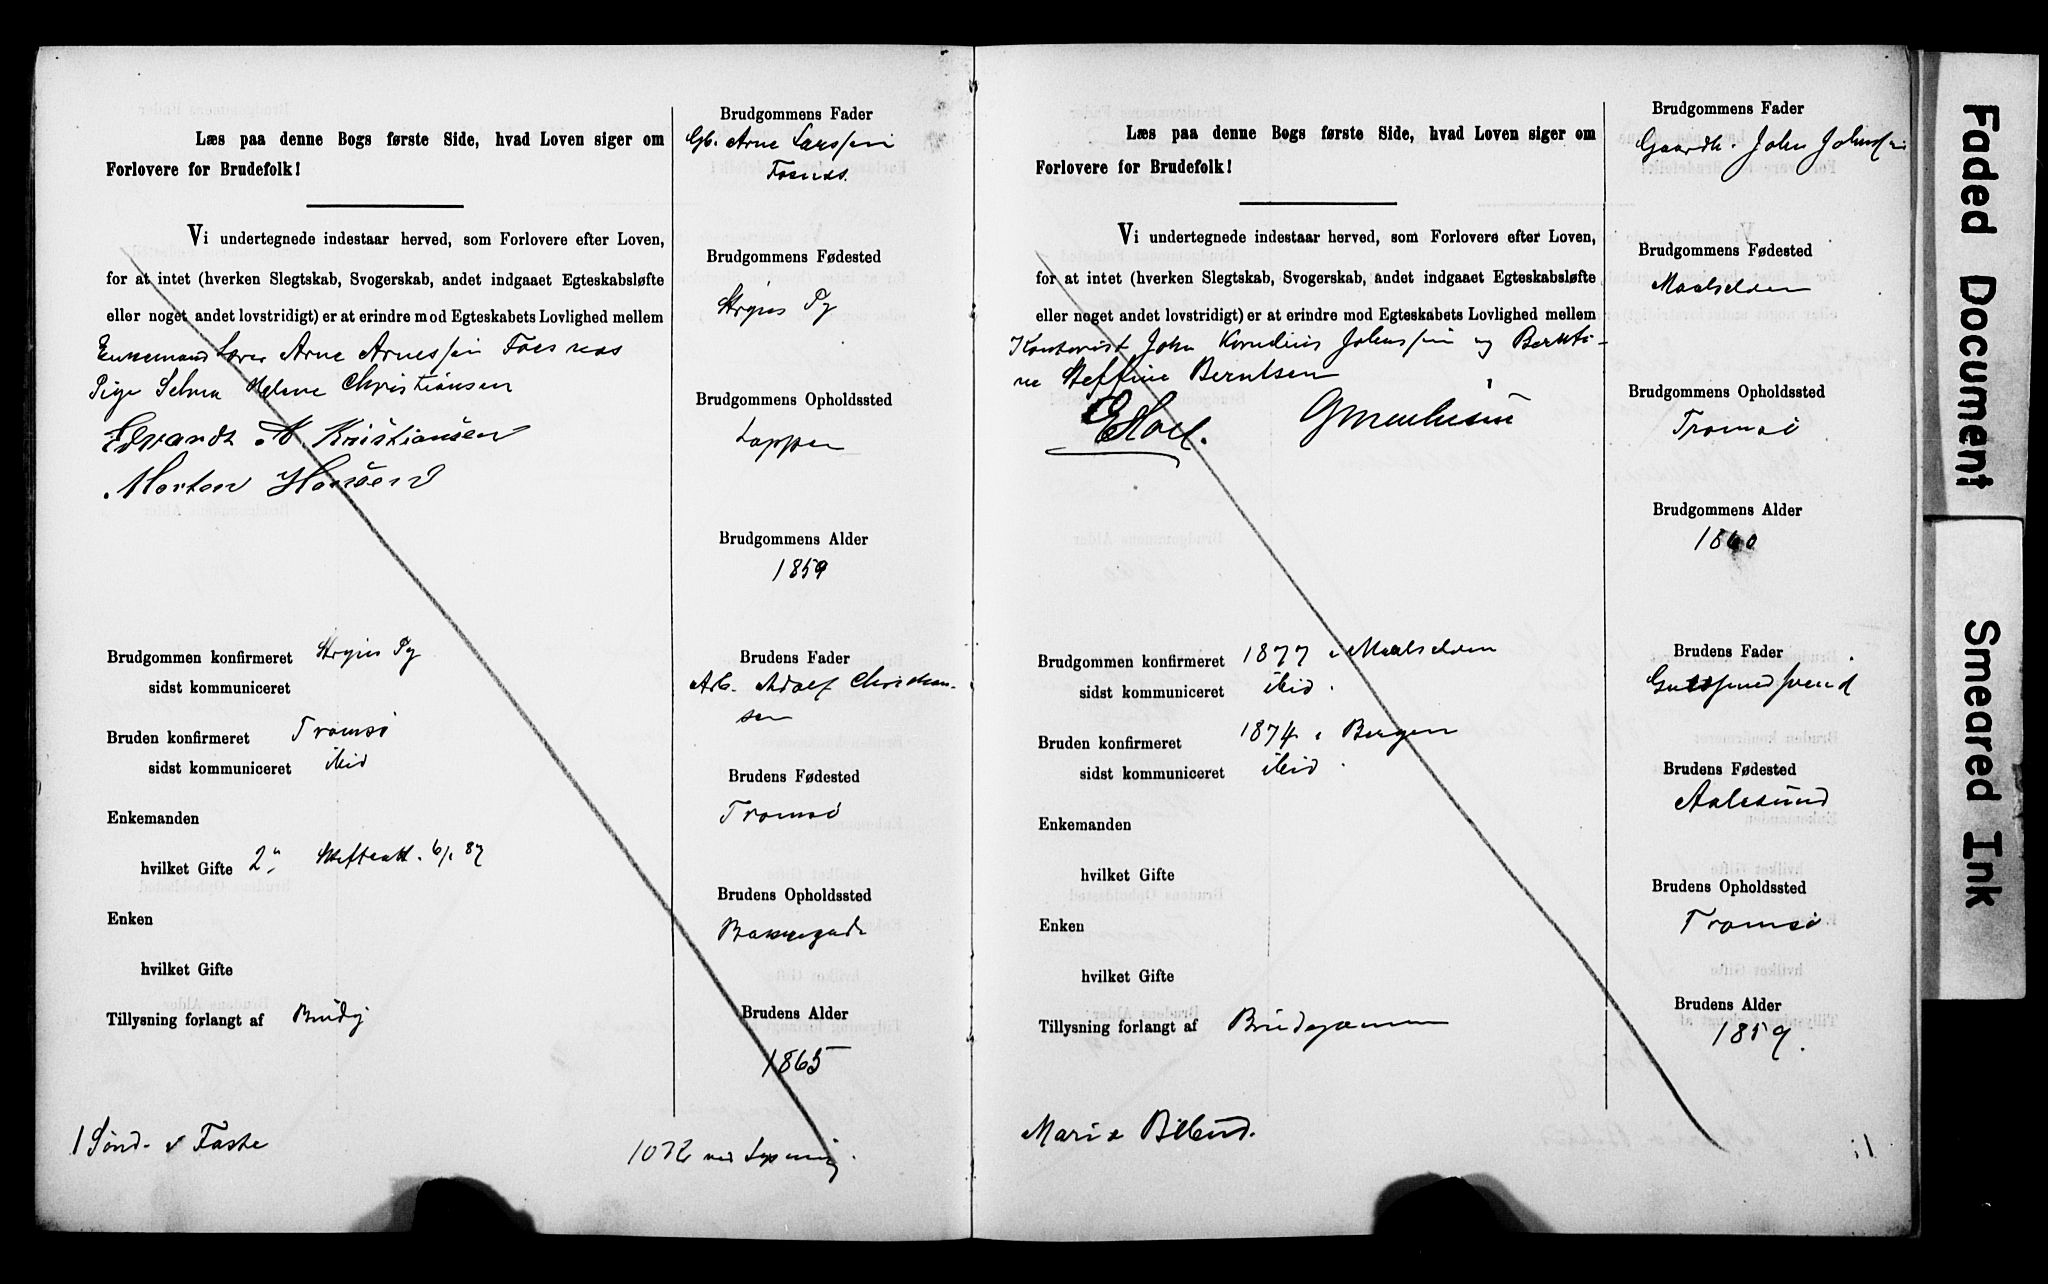 Læs paa denne Bogs første Side, hvad Loven siger om
Forlovere for Brudefolk!
Vi undertegnede indestaar herved, som Forlovere efter Loven,
for at intet (hverken Slegtskab, Svogerskab, andet indgaaet Egteskabsløfte
eller noget andet lovstridigt) er at erindre mod Egteskabets Lovlighed mellem
Enkemand Lærer Arne Arnessen Foesnæs
Pige Selma Helene Christiansen
Edvardt A. Kristiansen
Morten Hansen
Brudgommen konfirmeret
sidst kommuniceret
Bruden konfirmeret Tromsø
sidst kommuniceret ibid
Enkemanden
hvilket Gifte 2
Enken
hvilket Gifte
Tillysning forlangt af
1 Sønd. i Faste
Brudgommens Fader
Gb. Arne Larssen
Brudgommens Fødested
Brudgommens Opholdssted
Brudgommens Alder
1859
Brudens Fader
Arb. Adolf Christian-
sen
Brudens Fødested
Tromsø
Brudens Opholdssted
Brudens Alder
1865
Læs paa denne Bogs første Side, hvad Loven siger om
Forlovere for Brudefolk!
Vi undertegnede indestaar herved, som Forlovere efter Loven,
for at intet (hverken Slegtskab, Svogerskab, andet indgaaet Egteskabsløfte
eller noget andet lovstridigt) er at erindre mod Egteskabets Lovlighed mellem
Kontorist John Kornelius Johnssen og Bernti-
ne Steffine Berntsen
Brudgommen konfirmeret 1877 i Maalselven
sidst kommuniceret ibid.
Bruden konfirmeret 1874 i Bergen
sidst kommuniceret ibid.
Enkemanden
hvilket Gifte
Enken
hvilket Gifte
Tillysning forlangt af Brudgommen
Marie
Brudgommens Fader
Gaardb. John Johnsen
Brudgommens Fødested
Maalselven
Brudgommens Opholdssted
Tromsø
Brudgommens Alder
1860
Brudens Fader
Brudens Fødested
Aalesund
Brudens Opholdssted
Tromsø
Brudens Alder
1859.
Faded Document
Smeared Ink